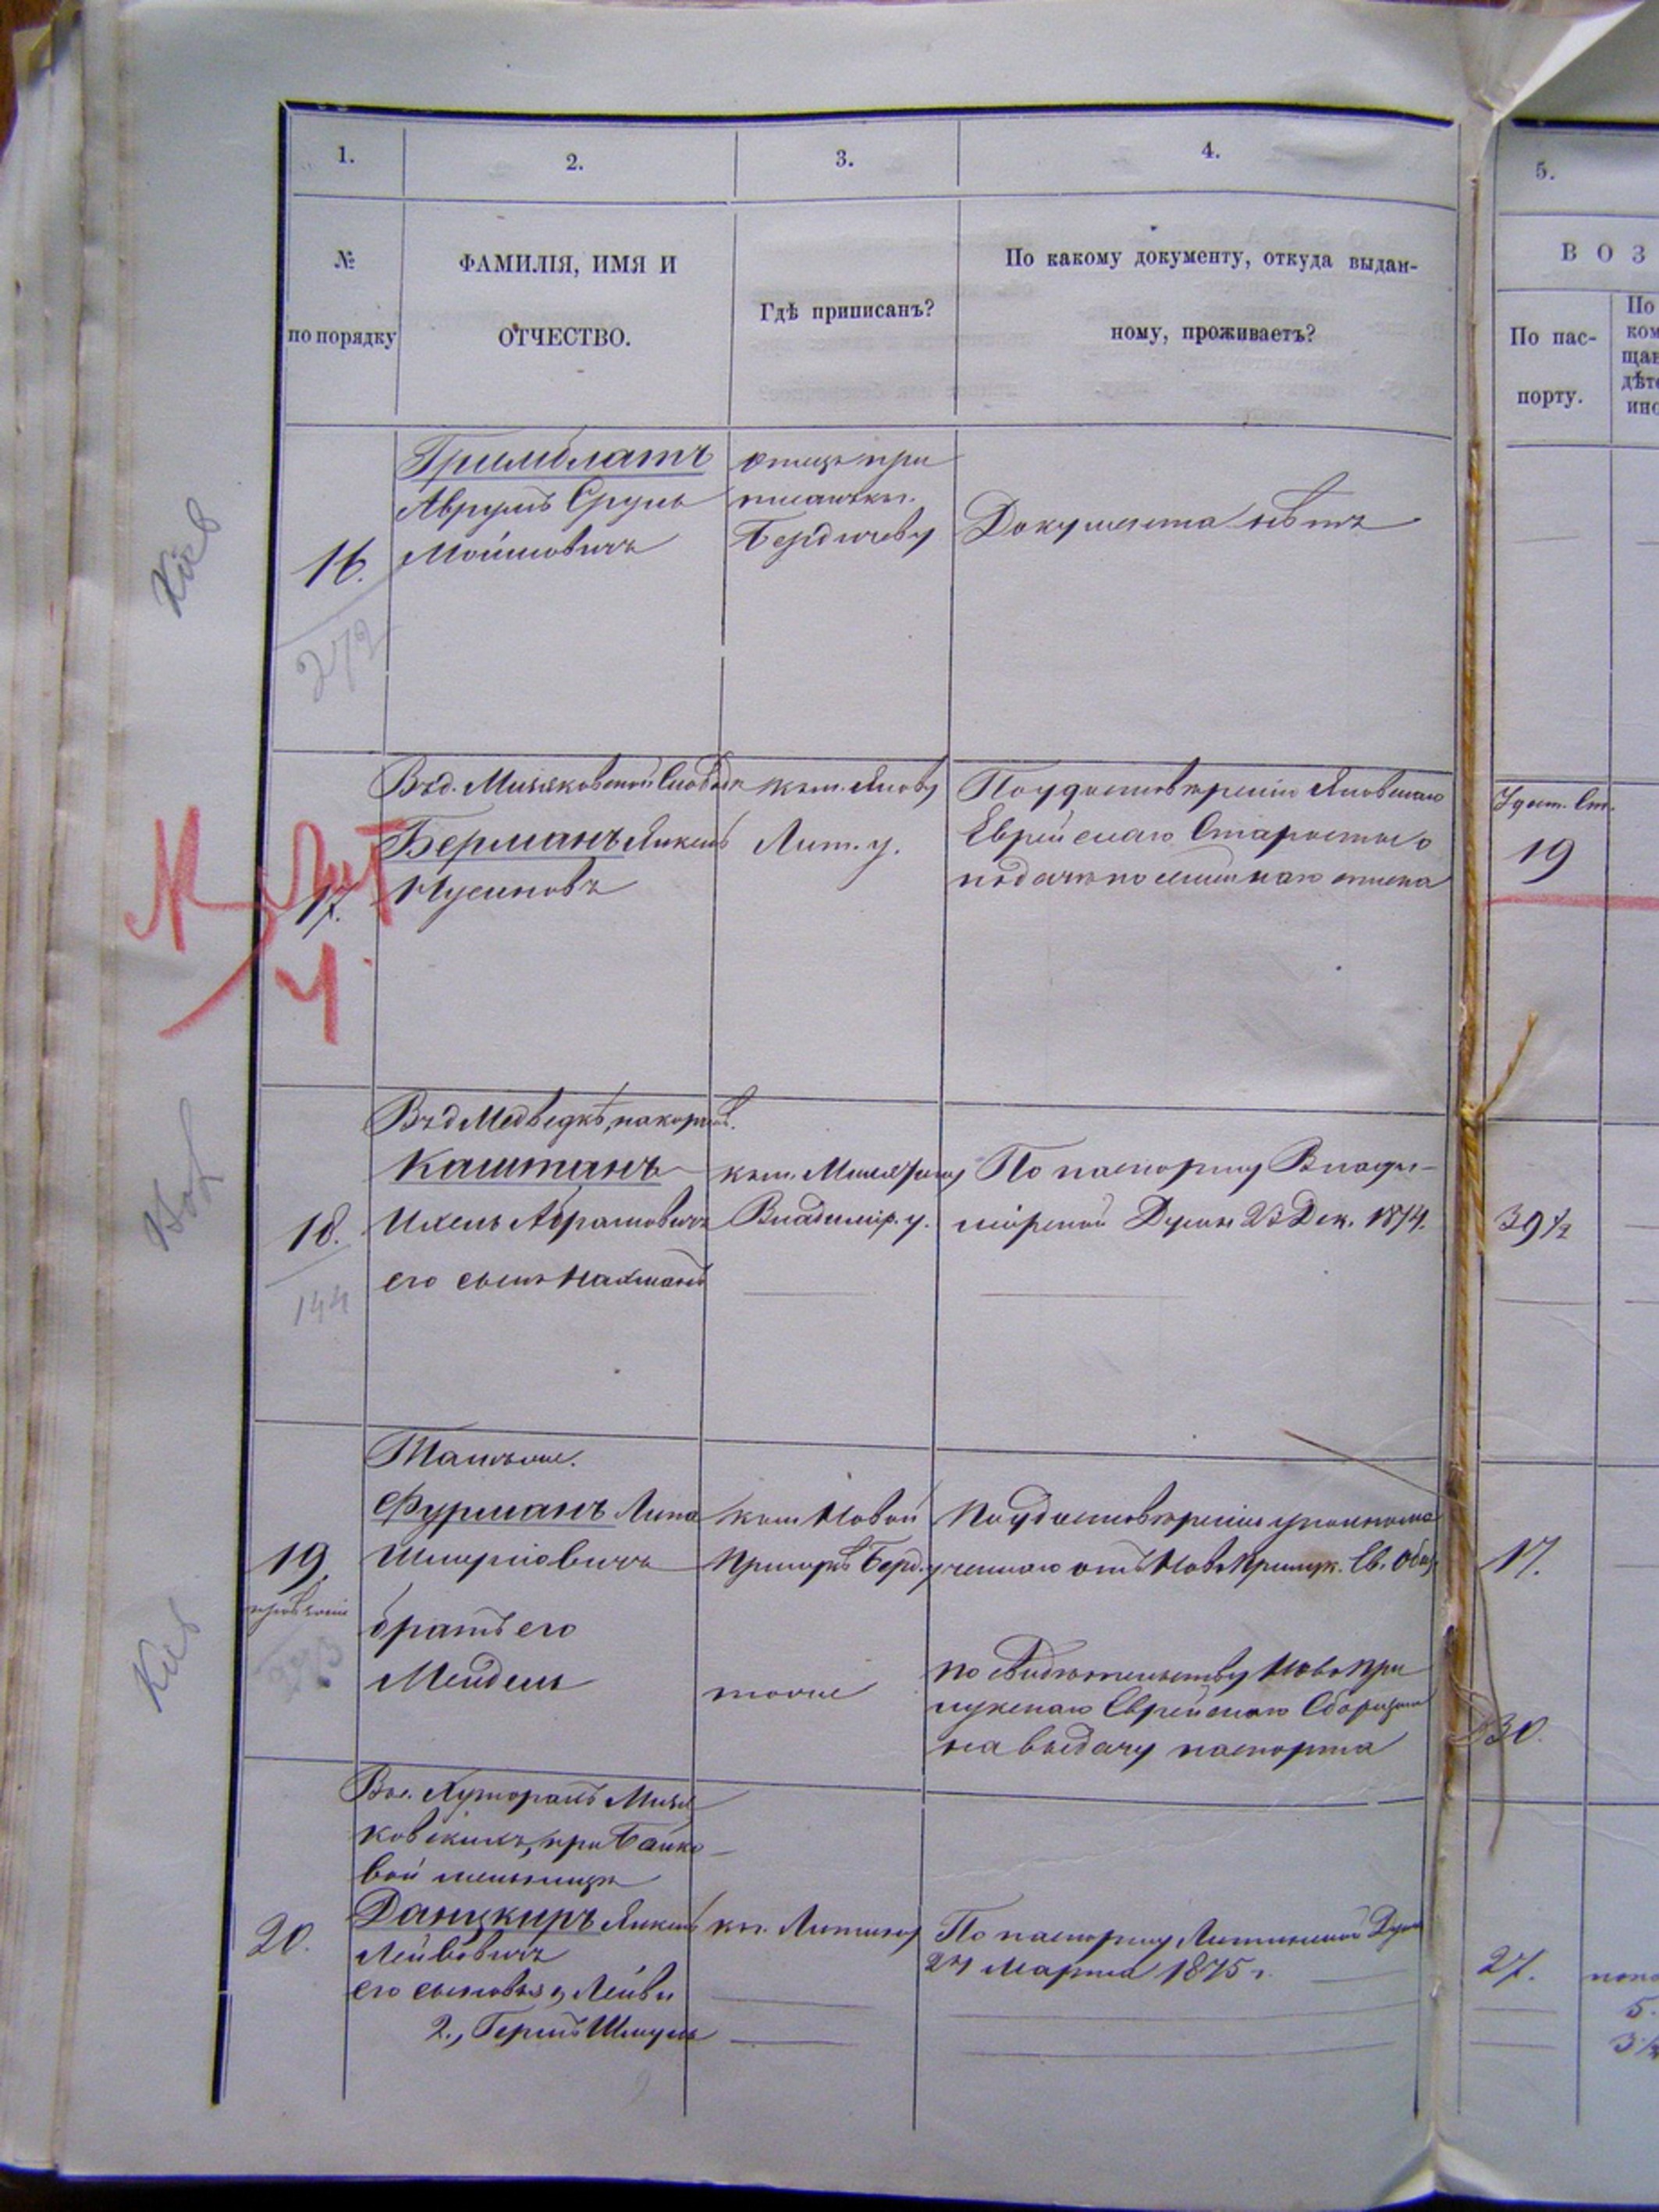 1.
2.
3.
4.
5.
№
по порядку
ФАМИЛІЯ, ИМЯ И
ОТЧЕСТВО.
Гдѣ приписанъ?
По какому документу, откуда выдан-
ному, проживаетъ?
ВОЗ
По пас-
порту.
По
ком
щан
дѣте
ино
Кіев
16.
272
Гримблатъ
Аврумъ Сруль
Мошковичъ
отецъ при
писанъ къ г.
Бердичеву
Документа нѣтъ
17.
Въ д. Мизяковской Слободѣ
Берманъ Янкель
Нусиновъ
къ м. Янову
Лит. у.
По удостовѣренію Яновскаго
Еврейскаго Старосты о
подачѣ посемейнаго списка
Удост. Ст.
19
18.
144
Въ д Медведкѣ, на
Каштанъ
Ихель Абрамовичъ
его сынъ Нахманъ
къ м.
Владимір. у.
По паспорту Влади-
мірской Думы 23 Дек. 1874.
39 ½
19.
273
Кіев
Тамъ же.
Фурманъ Липа
Шмулiовичъ
братъ его
Мендель
къ м Новой
Прилукѣ Берд. у
тоже
По удостовѣренію
отъ Новоприлук. Ев. Общ
по свидѣтельству Новопри
лукскаго Еврейскаго Сборщика
на выдачу паспорта
17.
30.
20.
Въ с. Хуторахъ Мизя
ковскихъ, при Байко
вой мельницѣ
Данцкиръ Янкель
Лейбовичъ
его сыновья 1, Лейби
2., Гершъ Шмуль
къ г. Литину
По паспорту Литинской Думы
24 Марта 1875 г.
27.
5.
3 ½